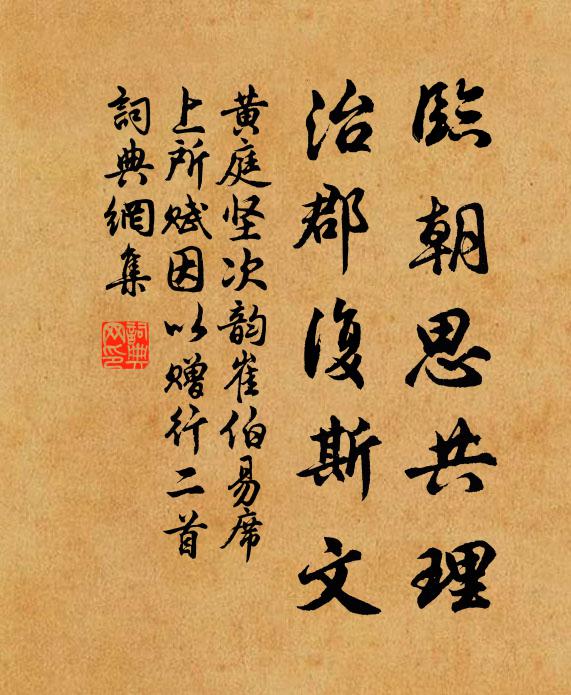 臨朝思共理
治郡復斯文
黄庭坚次韵崔伯易席
上所赋因以赠行二首
詞典網集
詞典网印